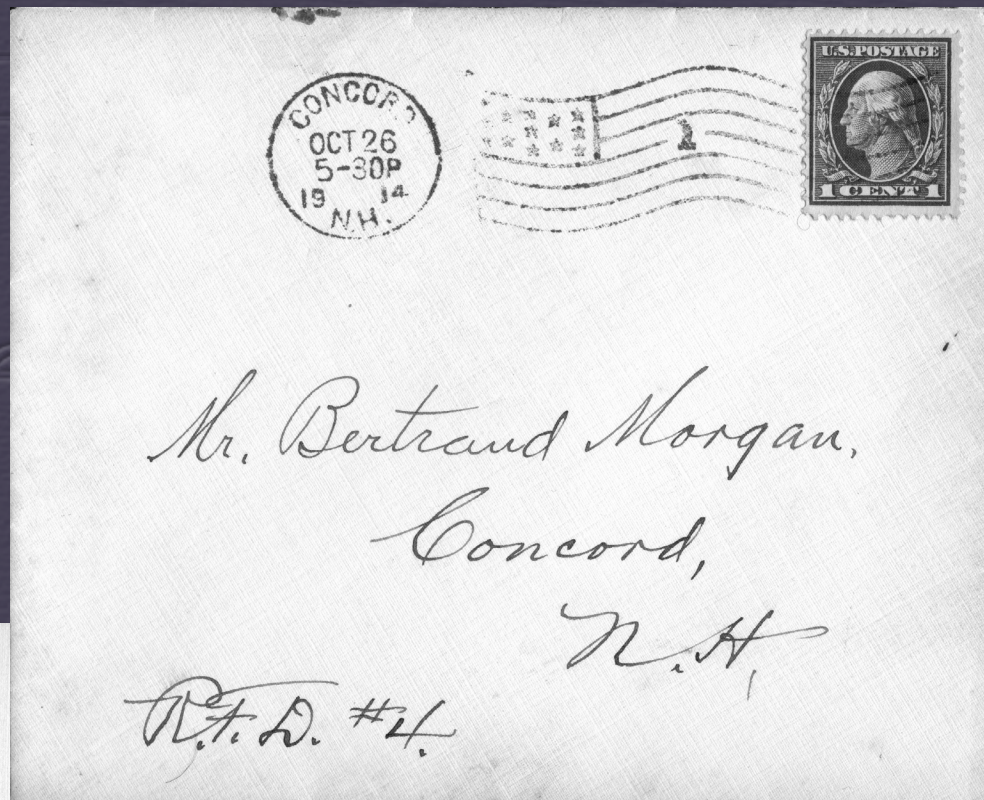 CONCORD
OCT 26
5-30P
19 14
N.H.
1
U.S. POSTAGE
1 CENT 1
Mr. Bertrand Morgan,
Concord,
N.H,
R.F.D. #4.